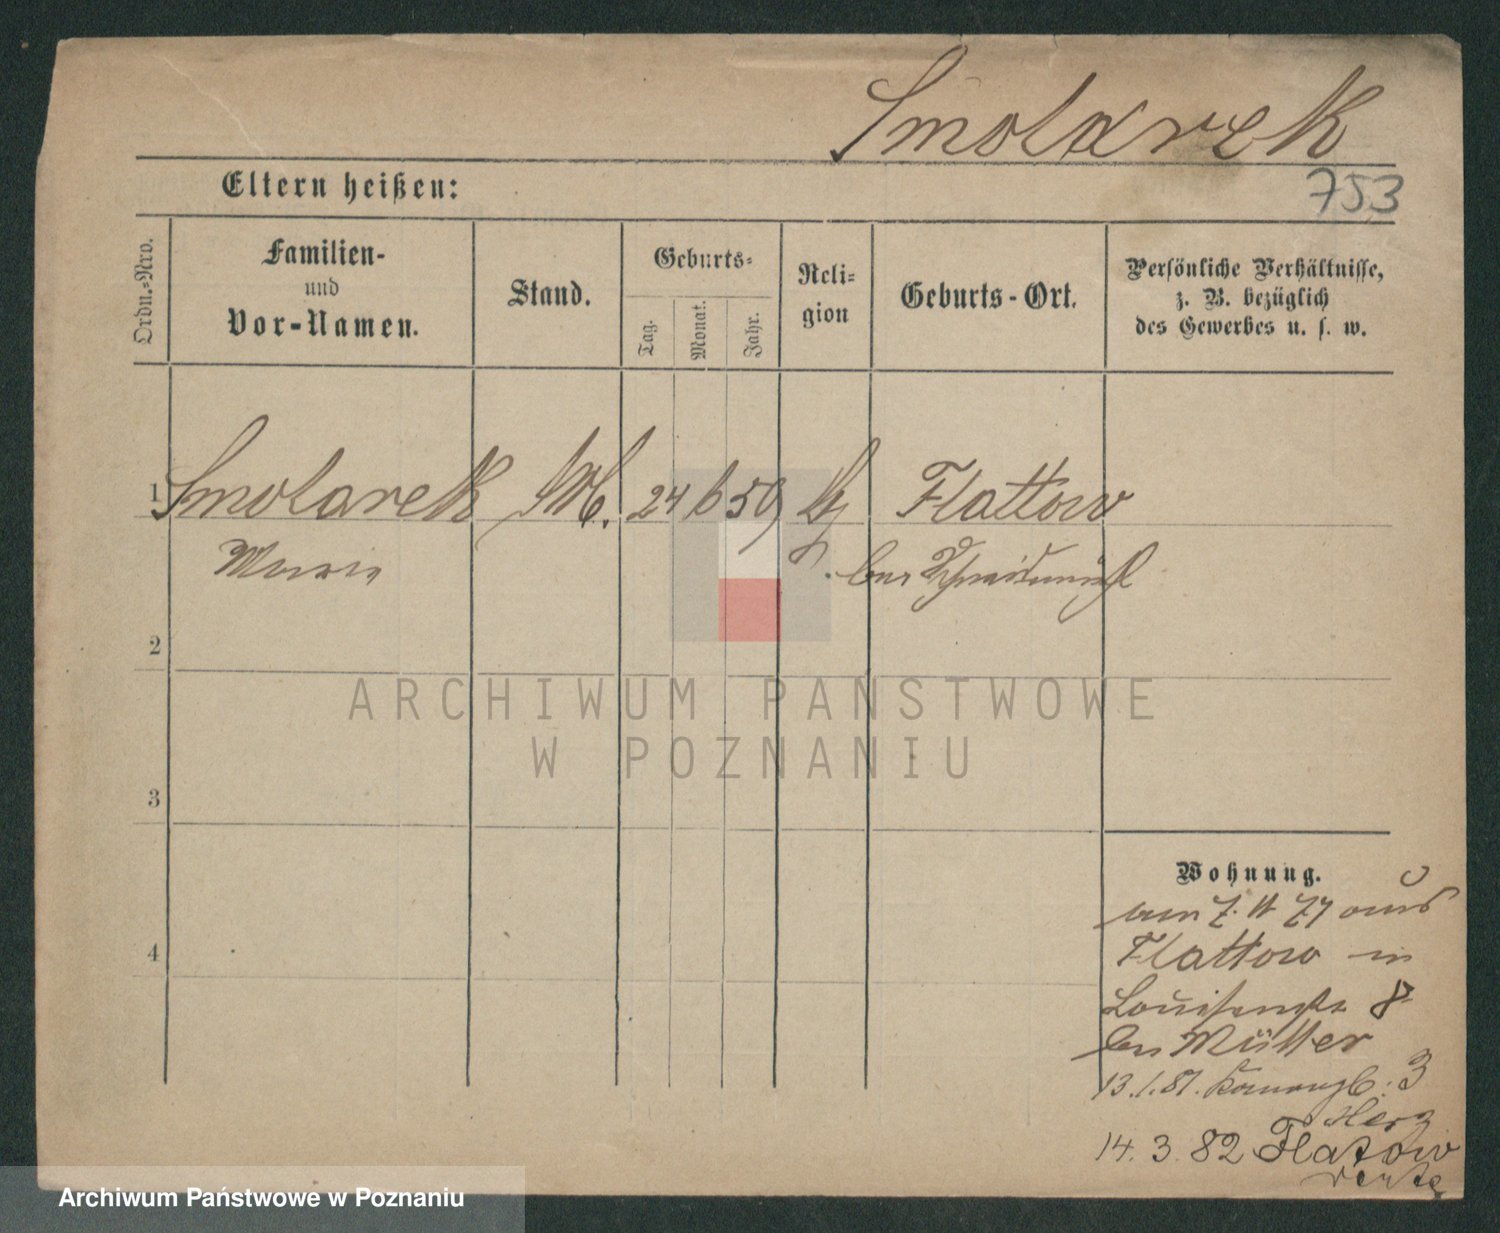 Smolarek
753
Eltern heißen:
Ordn.-Nro.
Familien-
und
Vor-Namen.
Stand.
Geburts-
Tag.
Monat.
Jahr.
Reli-
gion
Geburts-Ort.
Persönliche Verhältnisse,
z. B. bezüglich
des Gewerbes u. s. w.
1 Smolarek M. 24 6 59 Flattow
Marie bei Schneidemühl
2
3
4
Wohnung.
am 7. 11 77 aus
Flattow in
Louisenstr 8
bei Mütter
13.1.81. 3
Herz
14. 3. 82 Flatow
ARCHIWUM PAŃSTWOWE
W POZNANIU
Archiwum Państwowe w Poznaniu